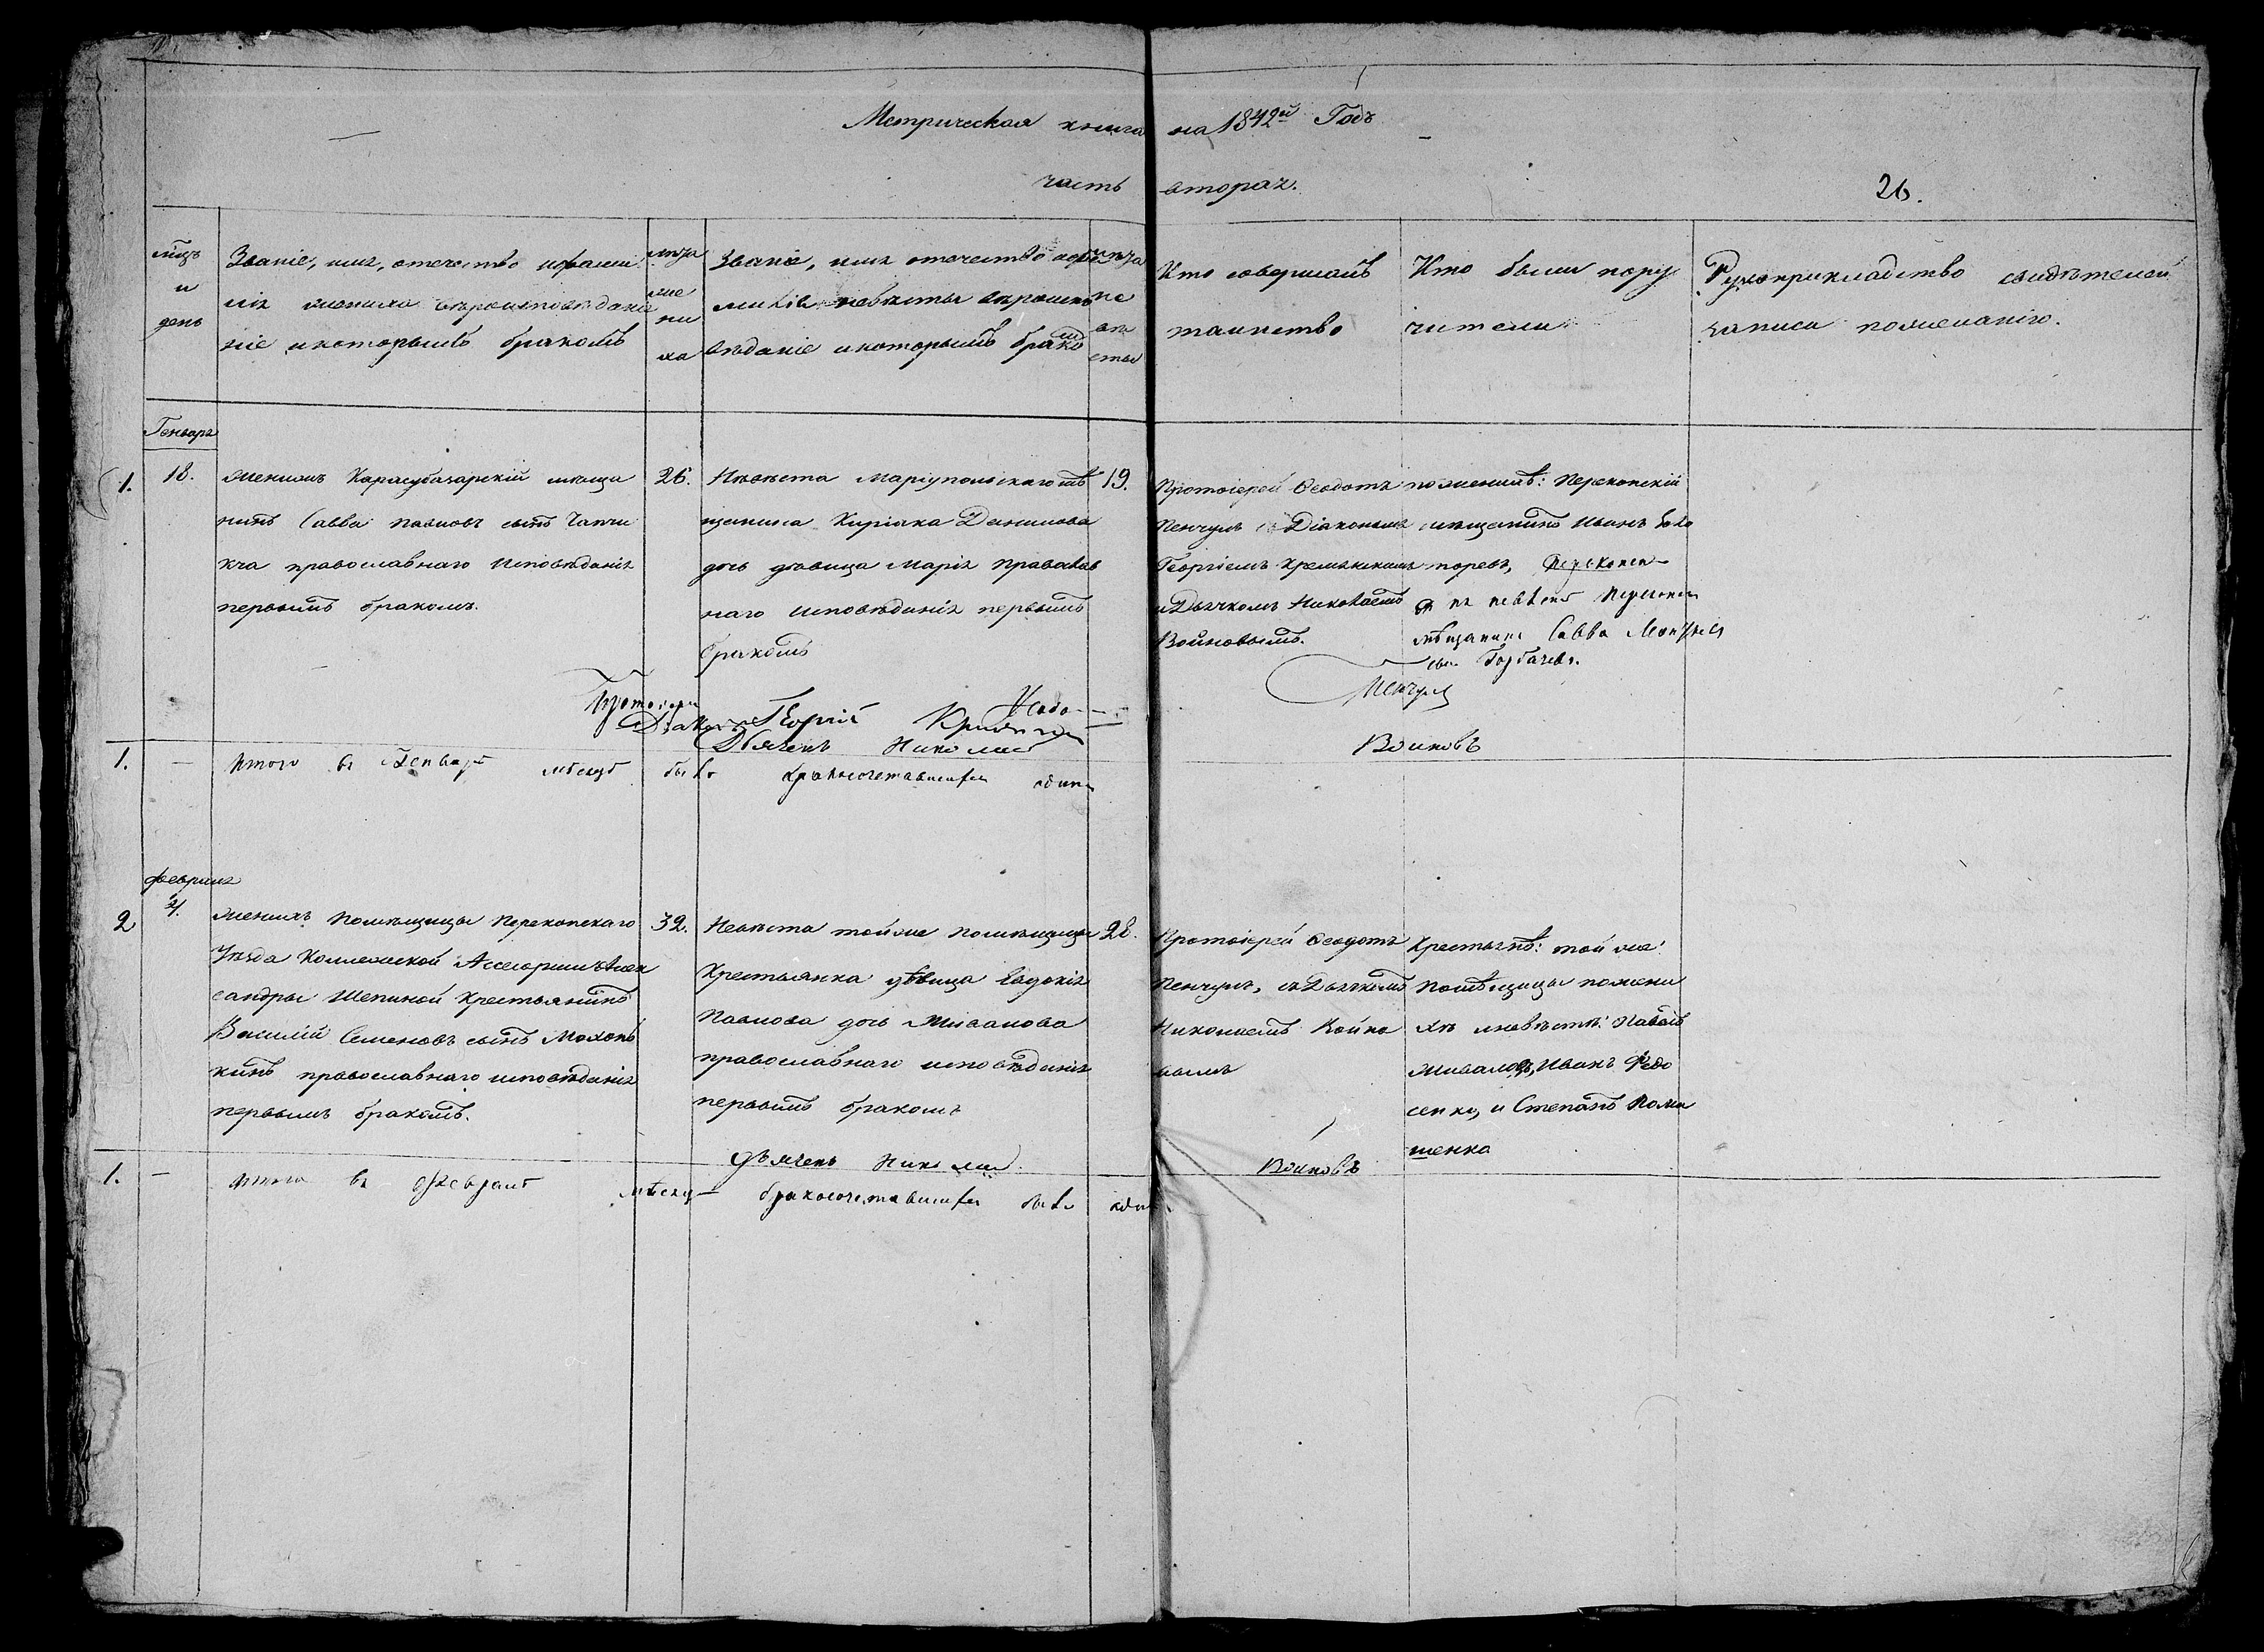 Метрическая книга на 1842й Годъ
часть вторая.
26.
мцъ
и
день
Званіе, имя, отечество и фами
лія жениха вероисповедание
ніе и которымъ бракомъ
лѣта
же
ни
ха
Званіе, имя отечество и фа
милія невѣсты вѣроиспо
вѣданіе и которымъ бракомъ
лѣта
не
вѣ
сты
Кто совершалъ
таинство
Кто были пору
чители
Рукоприкладство свидѣтелей
записи по желанію.
Генваря
1.
18.
Женихъ Карасубазарскій мѣща
нинъ Савва Павловъ сынъ
православнаго исповѣданія
первымъ бракомъ.
26.
Невѣста Маріупольскаго мѣ
щанина Киріака Данилова
дочь дѣвица Марія православ
наго исповѣданія первымъ
бракомъ
19.
Протоіерей Ѳеодотъ
Пенчулъ съ Діакономъ
Георгіемъ
и Дьячкомъ Николаемъ
Войновымъ.
по женихѣ: Перекопскій
мѣщанинъ Иванъ
по невѣстѣ
мѣщанинъ Савва
сынъ Горбачевъ.
Протоіерей Ѳеодо
Пенчулъ
Діаконъ Георгій
Дьячекъ Николай Воиновъ
1. — Итого въ Генварѣ мѣсяцѣ было бракосочетавшихся один
февраля
2
4.
Женихъ Помѣщицы Перекопскаго
Уѣзда Коллежской Ассесорши Алек
сандры Шепиной Крестьянинъ
Василій Семеновъ сынъ Мохонь
кинъ православнаго исповѣданія
первымъ бракомъ.
32.
Невѣста той же помѣщицы
Крестьянка дѣвица Евдокія
Павлова дочь Живалова
православнаго исповѣданія
первымъ бракомъ
28.
Протоіерей Ѳеодотъ
Пенчулъ, съ Дьячкомъ
Николаемъ Войно
вымъ
Крестьянѣ: той же:
Помѣщицы по жени
хѣ и невѣстѣ: Павелъ
Живаловъ, Иванъ Федо
сенко, и Степанъ Рома
шенко
Дьячекъ Николай Воиновъ
1. — Итого въ Февралѣ мѣсяцѣ бракосочетавшихся было один